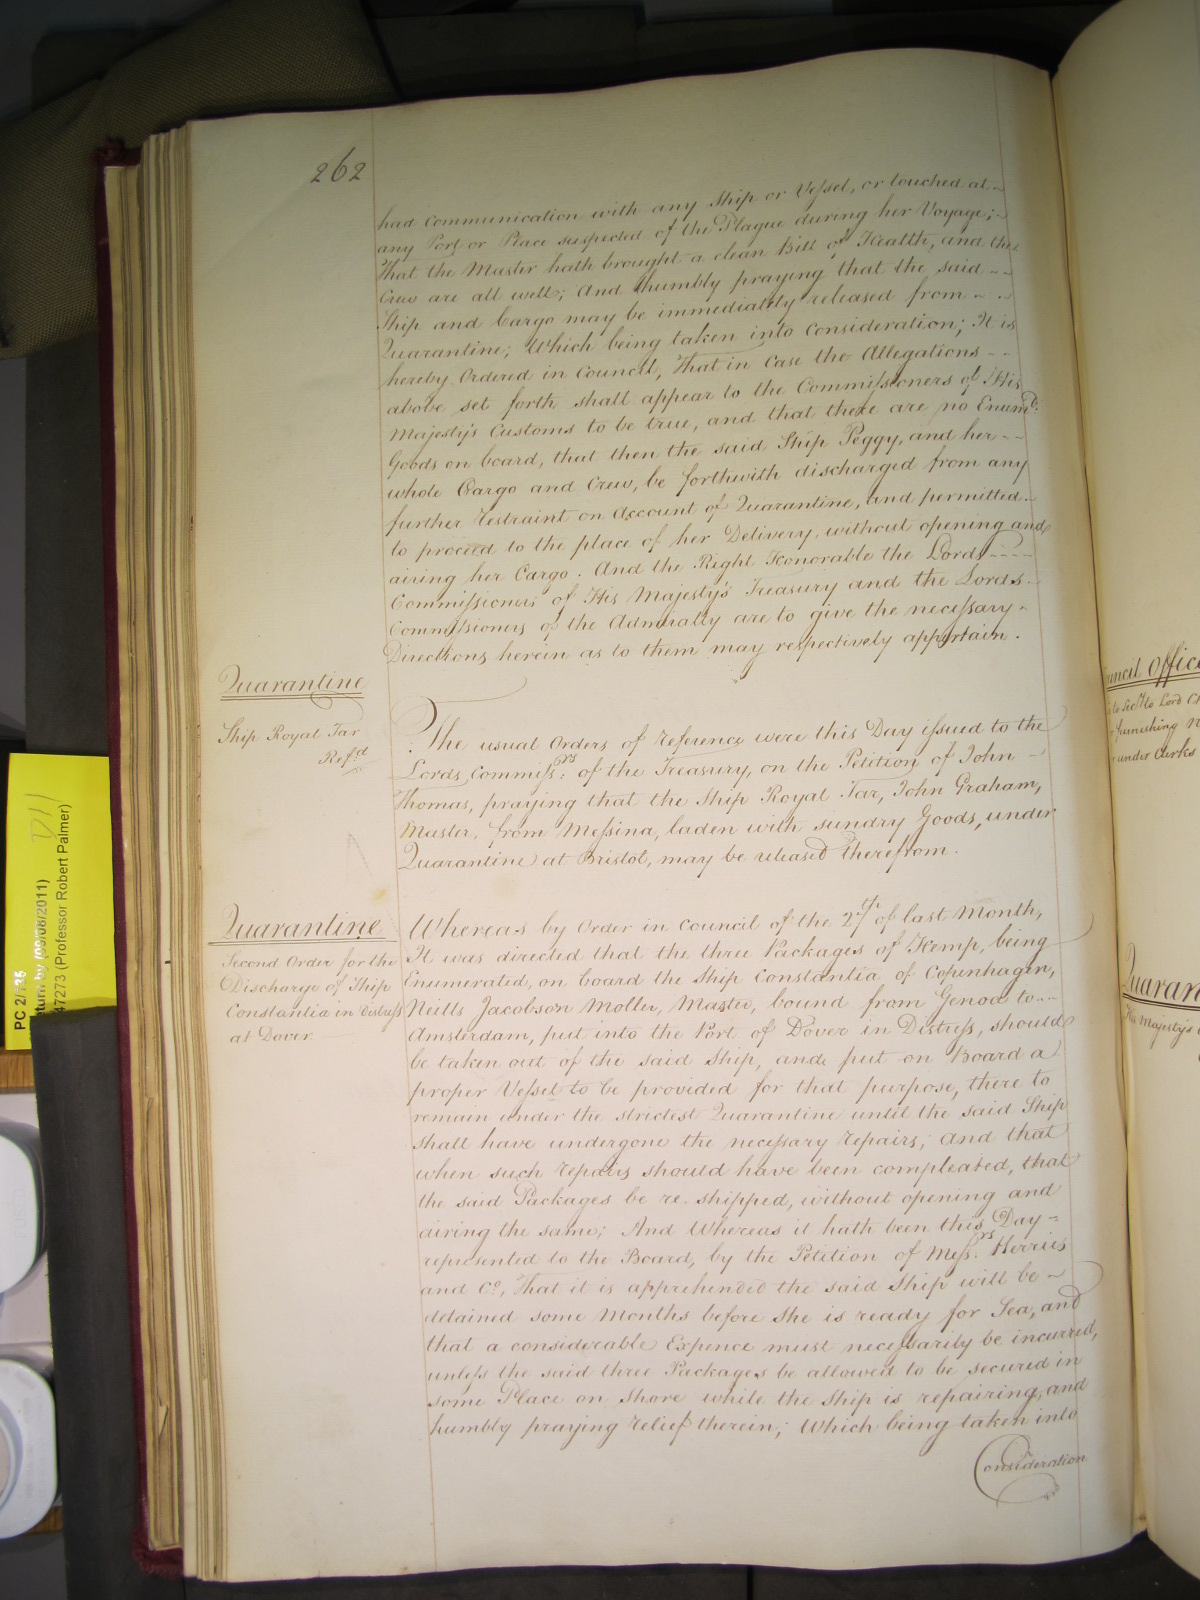 262
had Communication with any Ship or Vessel, or touched at
any Port or Place suspected of the Plague during her Voyage;
That the Master hath brought a clean Bill of Health, and the
Crew are all well; And humbly praying that the said
Ship and Cargo may be immediately released from
Quarantine; Which being taken into Consideration; It is
hereby Ordered in Council, That in Case the Allegations
above set forth shall appear to the Commissioners of His
Majesty's Customs to be true, and that there are no Enum.d
Goods on board, that then the said Ship Peggy, and her
whole Cargo and Crew, be forthwith discharged from any
further Restraint on Account of Quarantine, and permitted
to proceed to the place of her Delivery, without opening and
airing her Cargo. And the Right Honorable the Lords
Commissioners of His Majesty's Treasury and the Lords
Commissioners of the Admiralty are to give the necessary
Directions herein as to them may respectively appertain.
Quarantine
Ship Royal Tar
Ref.d
The usual Orders of Reference were this Day issued to the
Lords Commiss.rs of the Treasury, on the Petition of John
Thomas, praying that the Ship Royal Tar, John Graham,
Master, from Messina, laden with sundry Goods, under
Quarantine at Bristol, may be released therefrom.
Quarantine
Second Order for the
Discharge of Ship
Constantia in Distress
at Dover
Whereas by Order in Council of the 27th of last Month,
It was directed that the three Packages of Hemp, being
Enumerated, on board the Ship Constantia of Copenhagen,
Neills Jacobson Moller, Master, bound from Genoa to
Amsterdam, put into the Port of Dover in Distress, should
be taken out of the said Ship, and put on Board a
proper Vessel to be provided for that purpose, there to
remain under the strictest Quarantine until the said Ship
shall have undergone the necessary repairs; And that
when such repairs should have been compleated, that
the said Packages be re-shipped, without opening and
airing the same; And Whereas it hath been this Day
represented to the Board, by the Petition of Mess.rs Herries
and Co, That it is apprehended the said Ship will be
detained some Months before she is ready for Sea, and
that a considerable Expence must necessarily be incurred,
unless the said three Packages be allowed to be secured in
some Place on Shore while the Ship is repairing, and
humbly praying relief therein; Which being taken into
Consideration
PC 2/135
47273 (Professor Robert Palmer)
(09/08/2011)
Council Office
Quaran
His Majesty's
under Clerks
furnishing